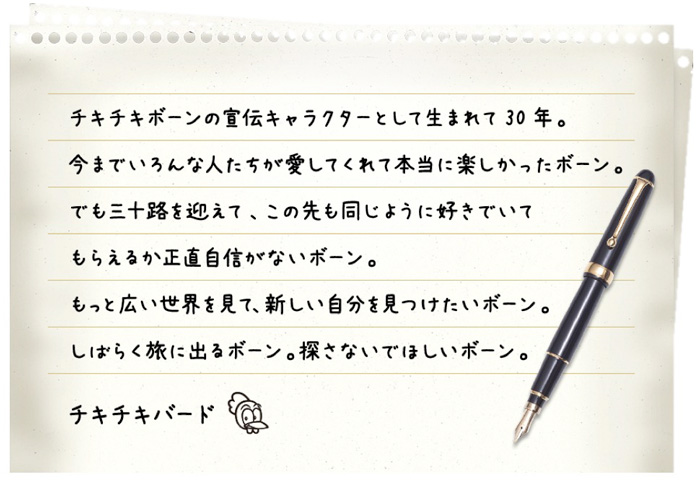 チキチキボーンの宣伝キャラクターとして生まれて30年。
今までいろんな人たちが愛してくれて本当に楽しかったボーン。
でも三十路を迎えて、この先も同じように好きでいて
もらえるか正直自信がないボーン。
もっと広い世界を見て、新しい自分を見つけたいボーン。
しばらく旅に出るボーン。探さないでほしいボーン。
チキチキバード